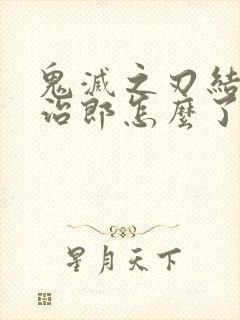 鬼滅之刃結
治郎怎麼了
星月天下